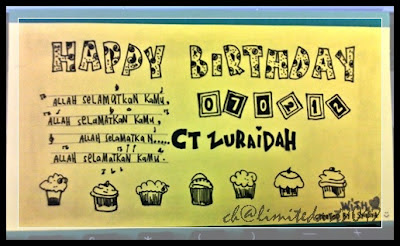 HAPPY BIRTHDAY
ALLAH SELAMATKAN KAMU,
ALLAH SELAMATKAN KAMU,
ALLAH SELAMATKAN.....
ALLAH SELAMATKAN KAMU.
070212
CT ZURAIDAH
WITH